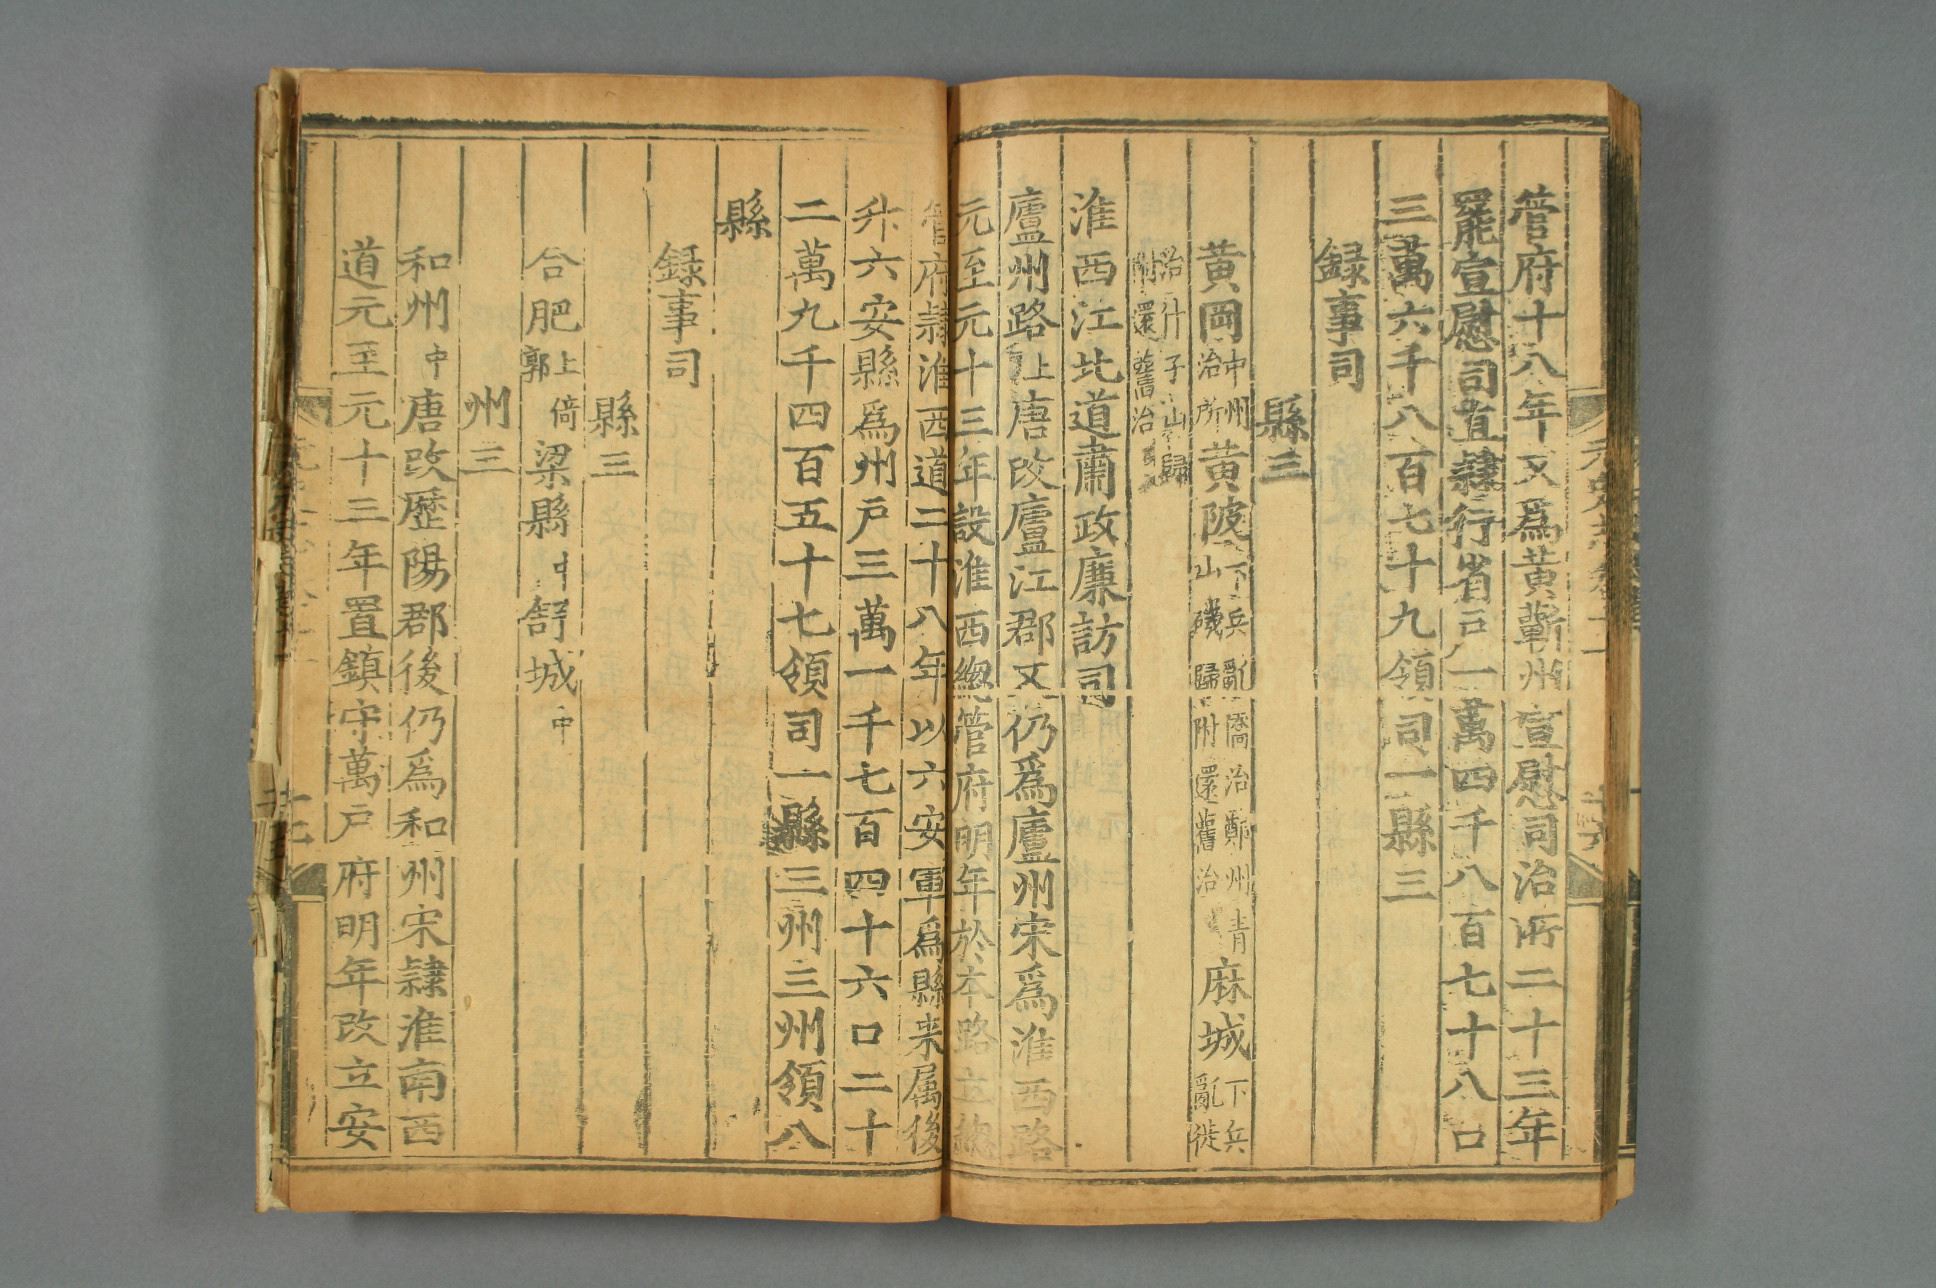 管府十八年又爲黄蘄州宣慰司治所二十三年
罷宣慰司直隷行省户一萬四千八百七十八口
三萬六千八百七十九領司一縣三
録事司
縣三
黄岡中州治所黄陂下兵亂僑治鄳州青山磯歸附還舊治麻城下兵亂徙
治什子山歸附還舊治
淮西江北道肅政廉訪司
廬州路上唐改廬江郡又仍爲廬州宋爲淮西路
元至元十三年設淮西總管府明年於本路立總
管府隷淮西道二十八年以六安軍爲縣来属後
升六安縣爲州戸三萬一千七百四十六口二十
二萬九千四百五十七領司一縣三州三州領八
縣
録事司
縣三
合肥上倚郭梁縣中舒城中
州三
和州中唐改歷陽郡後仍爲和州宋隷淮南西
道元至元十三年置鎮守萬戸府明年改立安